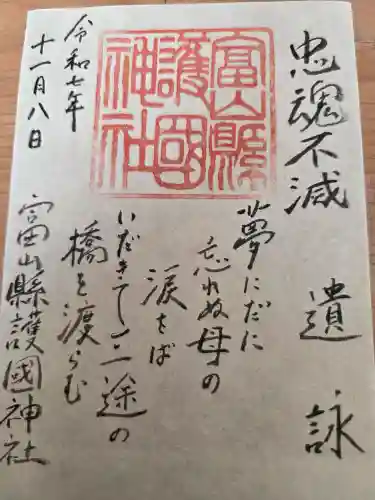 忠魂不滅
遺詠
富山縣
護國
神社
夢にだに
忘れぬ母の
涙をば
いだきて三途の
橋を渡らむ
令和七年
十一月八日
富山縣護國神社